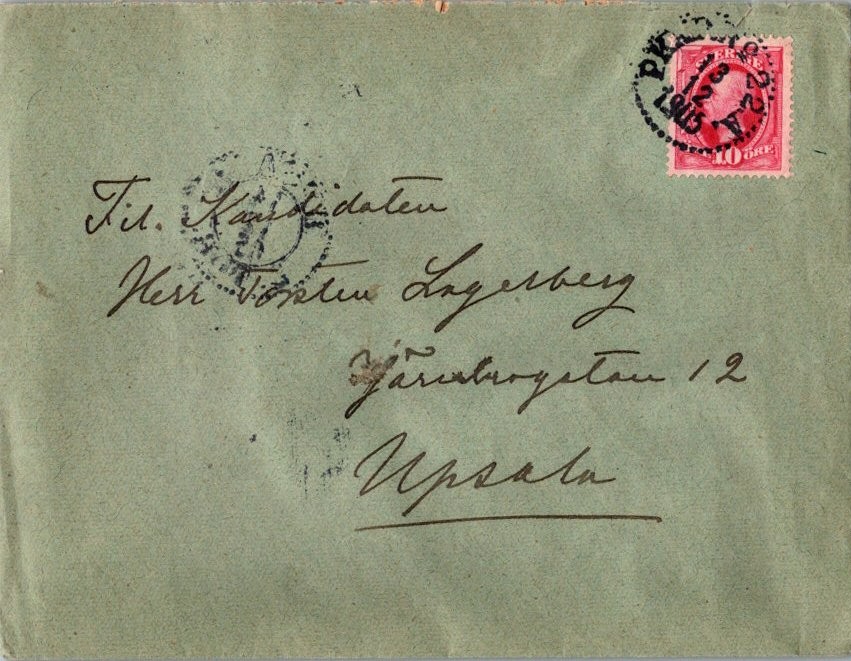 PKXP Nº 22 A
13
12
1905
SVERIGE
10 ÖRE
Fil. Kandidaten
Herr Torsten Lagerberg
Järnbrogatan 12
Upsala